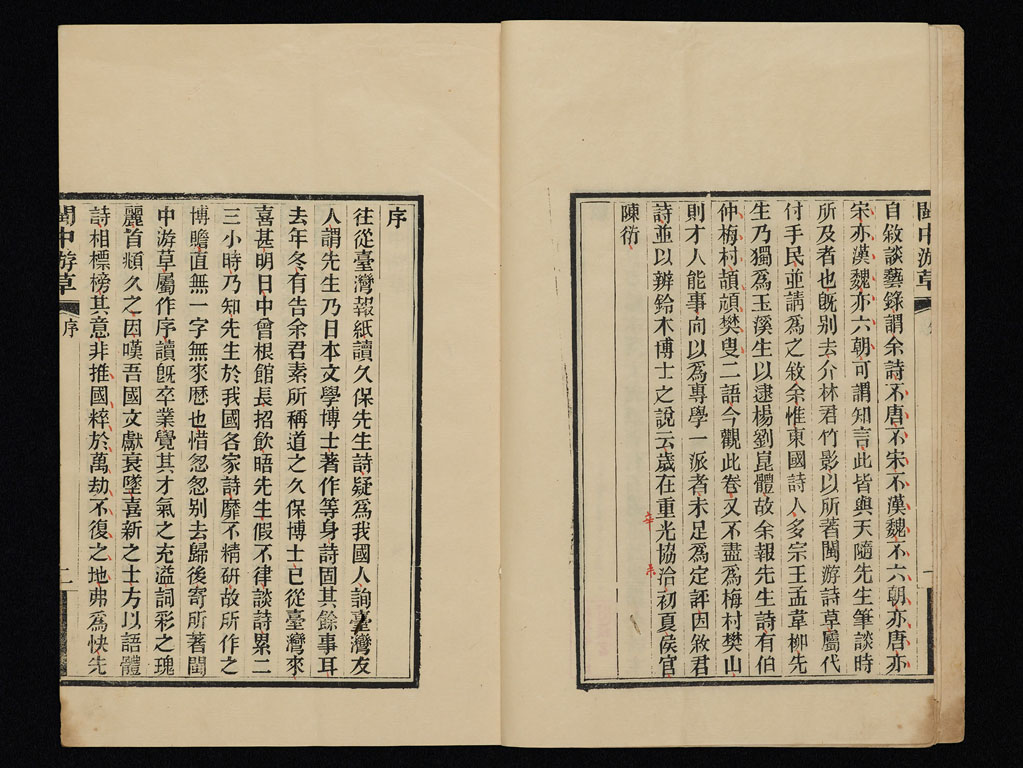 閩中游草
自敘談藝錄謂余詩不唐不宋不漢魏不六朝亦唐亦
宋亦漢魏亦六朝可謂知言此皆與天隨先生筆談時
所及者也旣別去介林君竹影以所著閩游詩草屬代
付手民並請爲之敘余惟東國詩人多宗王孟韋柳先
生乃獨爲玉溪生以逮楊劉崑體故余報先生詩有伯
仲梅村頡頏樊叟二語今觀此卷又不盡爲梅村樊山
則才人能事向以爲專學一派者未足爲定評因敘君
詩並以辨鈴木博士之說云歲在重光協洽初夏侯官
辛未
陳衍
序
往從臺灣報紙讀久保先生詩疑爲我國人詢臺灣友
人謂先生乃日本文學博士著作等身詩固其餘事耳
去年冬有告余君素所稱道之久保博士已從臺灣來
喜甚明日中曾根館長招飲晤先生假不律談詩累二
三小時乃知先生於我國各家詩靡不精研故所作之
博瞻直無一字無來歷也惜怱怱別去歸後寄所著閩
中游草屬作序讀旣卒業覺其才氣之充溢詞彩之瑰
麗首頫久之因嘆吾國文獻衰墜喜新之士方以語體
詩相標榜其意非推國粹於萬劫不復之地弗爲快先
閩中游草
序
二